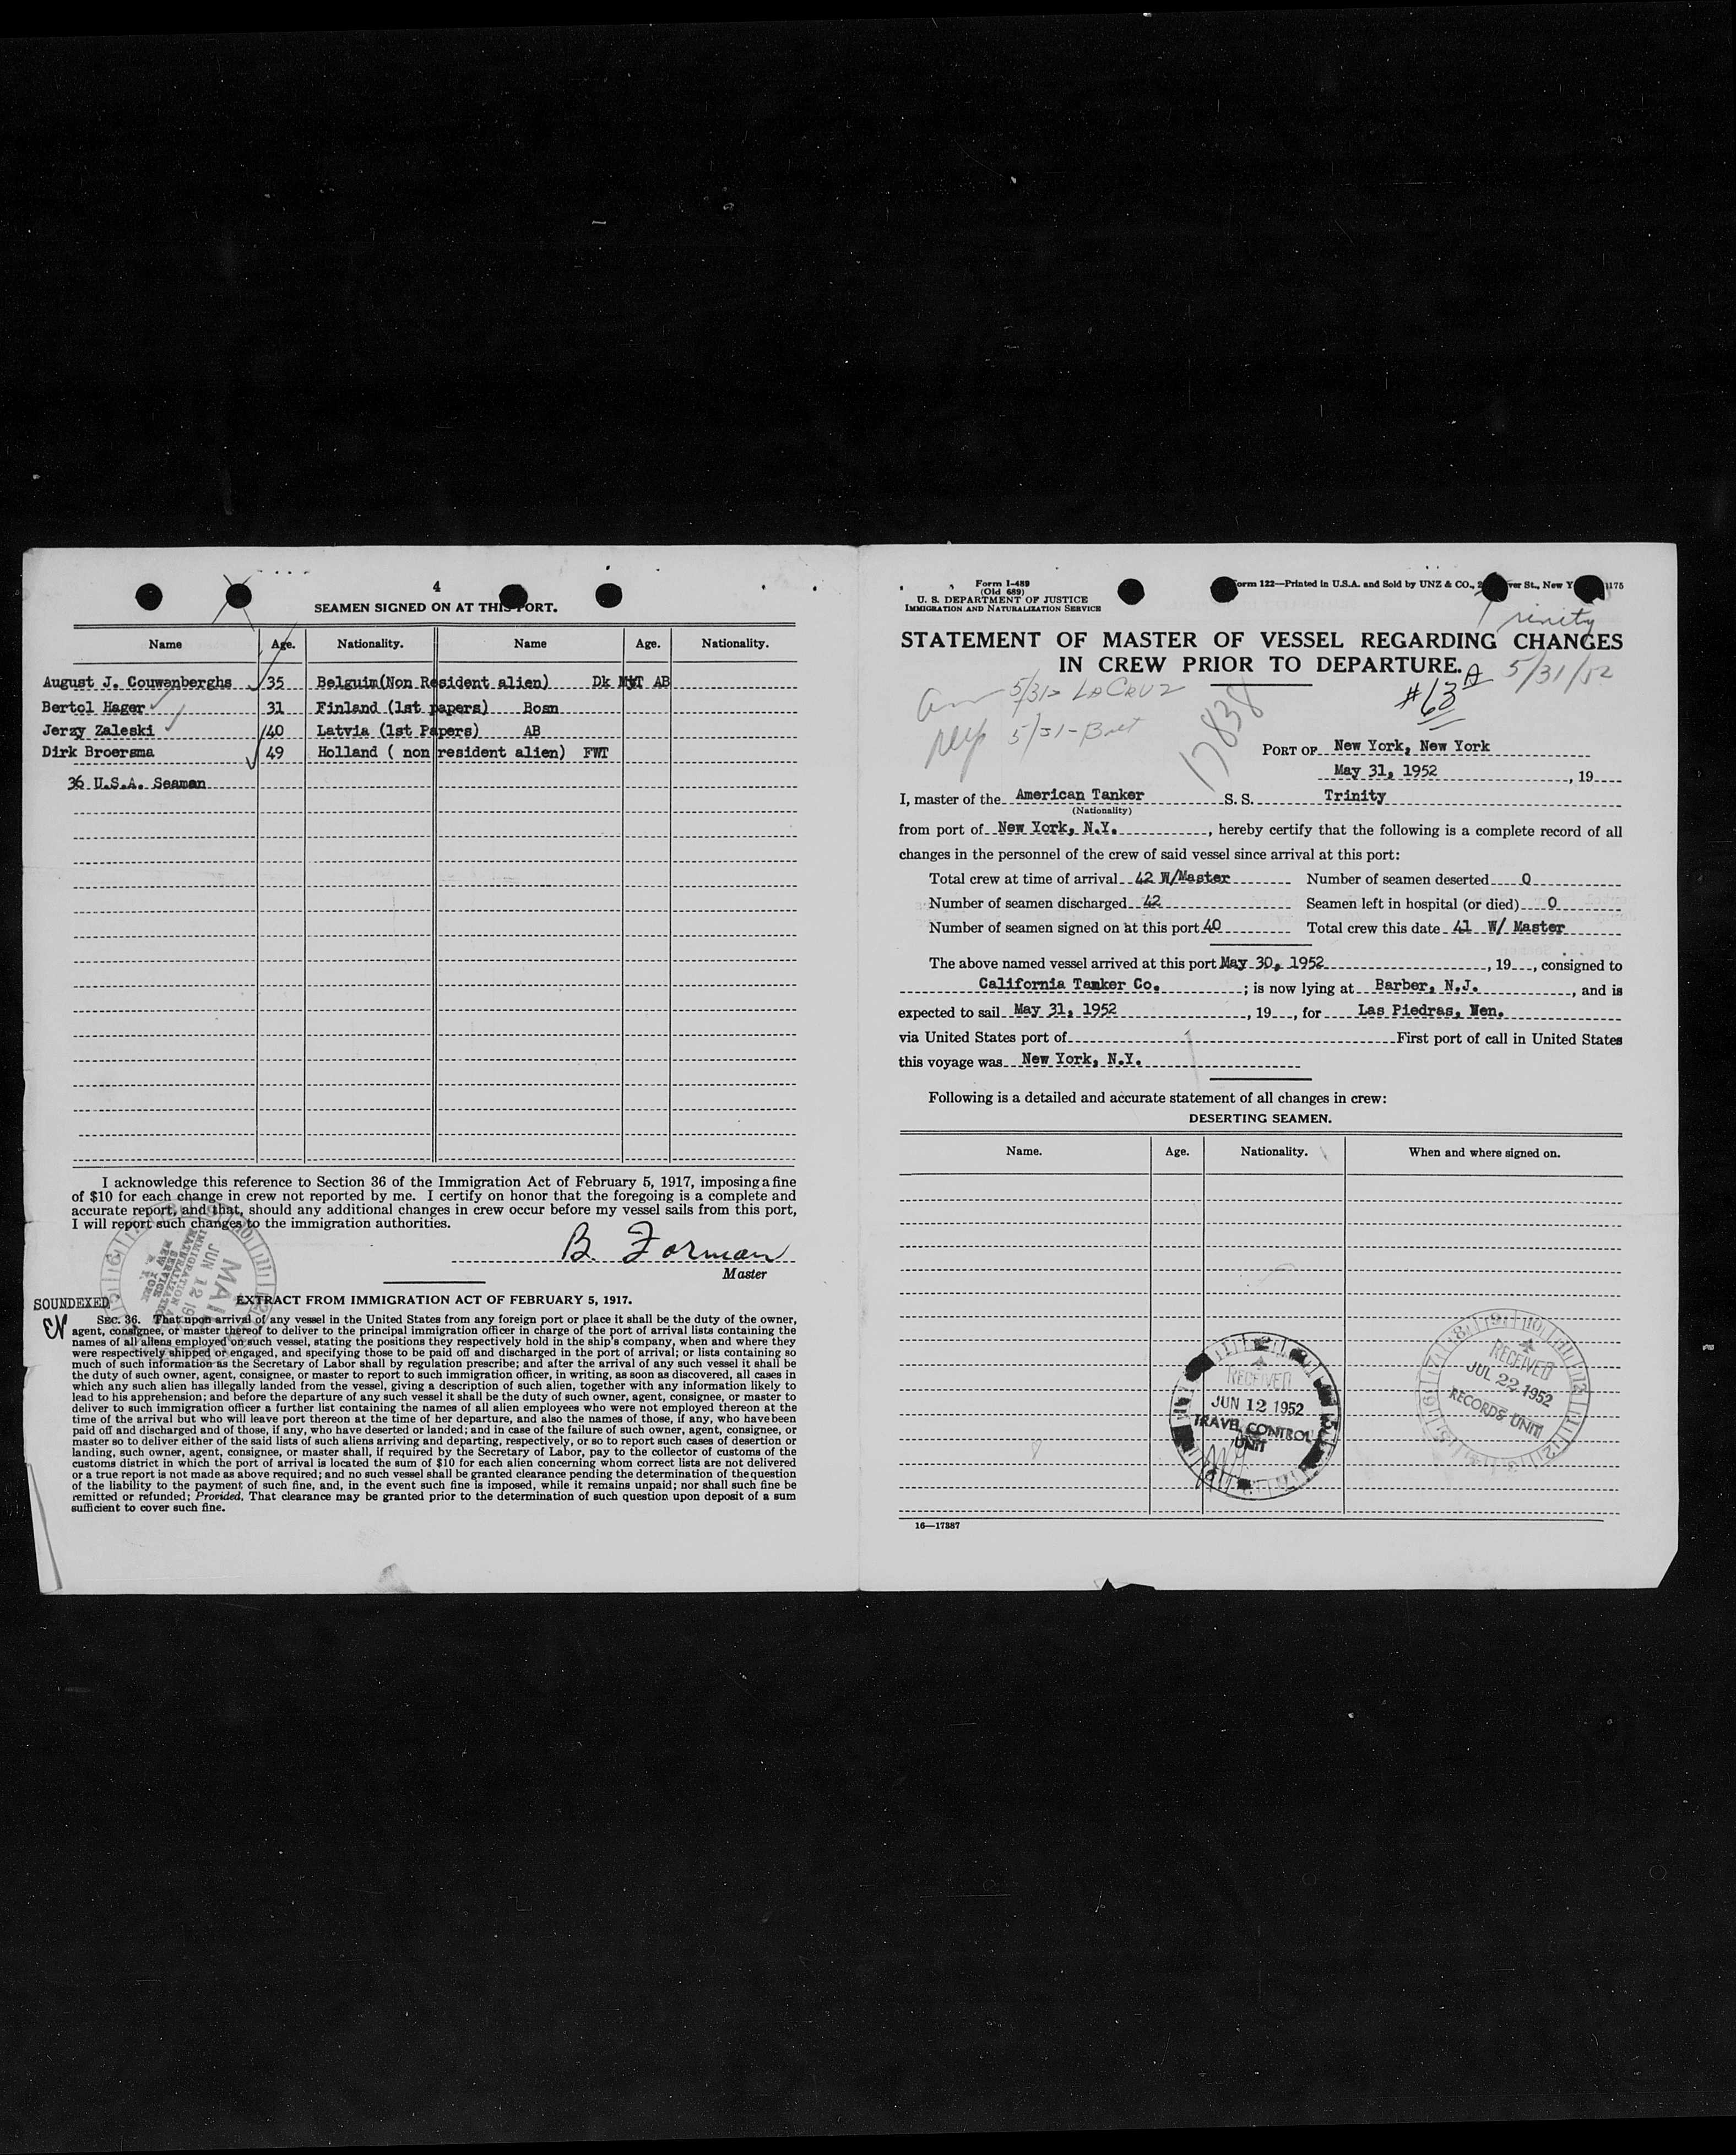 4
SEAMEN SIGNED ON AT THIS PORT.
Name Age. Nationality. Name Age. Nationality.
August J. Couwenberghs 35 Belguim(Non Resident alien) Dk AB
Bertol Hager 31 Finland (1st papers) Bosn
Jerzy Zaleski 40 Latvia (1st Papers) AB
Dirk Broersma 49 Holland ( non resident alien) FWT
36 U.S.A. Seaman
I acknowledge this reference to Section 36 of the Immigration Act of February 5, 1917, imposing a fine
of $10 for each change in crew not reported by me. I certify on honor that the foregoing is a complete and
accurate report, and that, should any additional changes in crew occur before my vessel sails from this port,
I will report such changes to the immigration authorities.
B. Forman
Master
MAIL
JUN 12 19
IMMIGRATION &
NATURALIZATION
SERVICE
NEW YORK
N. Y.
SOUNDEXED
EXTRACT FROM IMMIGRATION ACT OF FEBRUARY 5, 1917.
SEC. 36. That upon arrival of any vessel in the United States from any foreign port or place it shall be the duty of the owner,
agent, consignee, or master thereof to deliver to the principal immigration officer in charge of the port of arrival lists containing the
names of all aliens employed on such vessel, stating the positions they respectively hold in the ship's company, when and where they
were respectively shipped or engaged, and specifying those to be paid off and discharged in the port of arrival; or lists containing so
much of such information as the Secretary of Labor shall by regulation prescribe; and after the arrival of any such vessel it shall be
the duty of such owner, agent, consignee, or master to report to such immigration officer, in writing, as soon as discovered, all cases in
which any such alien has illegally landed from the vessel, giving a description of such alien, together with any information likely to
lead to his apprehension; and before the departure of any such vessel it shall be the duty of such owner, agent, consignee, or master to
deliver to such immigration officer a further list containing the names of all alien employees who were not employed thereon at the
time of the arrival but who will leave port thereon at the time of her departure, and also the names of those, if any, who have been
paid off and discharged and of those, if any, who have deserted or landed; and in case of the failure of such owner, agent, consignee, or
master so to deliver either of the said lists of such aliens arriving and departing, respectively, or so to report such cases of desertion or
landing, such owner, agent, consignee, or master shall, if required by the Secretary of Labor, pay to the collector of customs of the
customs district in which the port of arrival is located the sum of $10 for each alien concerning whom correct lists are not delivered
or a true report is not made as above required; and no such vessel shall be granted clearance pending the determination of the question
of the liability to the payment of such fine, and, in the event such fine is imposed, while it remains unpaid; nor shall such fine be
remitted or refunded; Provided, That clearance may be granted prior to the determination of such question upon deposit of a sum
sufficient to cover such fine.
Form I-489
(Old 689)
U. S. DEPARTMENT OF JUSTICE
IMMIGRATION AND NATURALIZATION SERVICE
orm 122—Printed in U.S.A. and Sold by UNZ & CO., 2 ver St., New Y 1175
Trinity
STATEMENT OF MASTER OF VESSEL REGARDING CHANGES
IN CREW PRIOR TO DEPARTURE.
5/31/52
#63 A
5/31 LACRUZ
5/31
17838
PORT OF New York, New York
May 31, 1952, 19
I, master of the American Tanker S. S. Trinity
(Nationality)
from port of New York, N.Y., hereby certify that the following is a complete record of all
changes in the personnel of the crew of said vessel since arrival at this port:
Total crew at time of arrival 42 W/Master Number of seamen deserted 0
Number of seamen discharged 42 Seamen left in hospital (or died) 0
Number of seamen signed on at this port 40 Total crew this date 41 W/ Master
The above named vessel arrived at this port May 30, 1952, 19, consigned to
California Tanker Co.; is now lying at Barber, N.J., and is
expected to sail May 31, 1952, 19, for Las Piedras, Ven.
via United States port of First port of call in United States
this voyage was New York, N.Y.
Following is a detailed and accurate statement of all changes in crew:
DESERTING SEAMEN.
Name. Age. Nationality. When and where signed on.
RECEIVED
JUN 12 1952
TRAVEL CONTROL
UNIT
RECEIVED
JUL 22 1952
RECORDS UNIT
16—17387